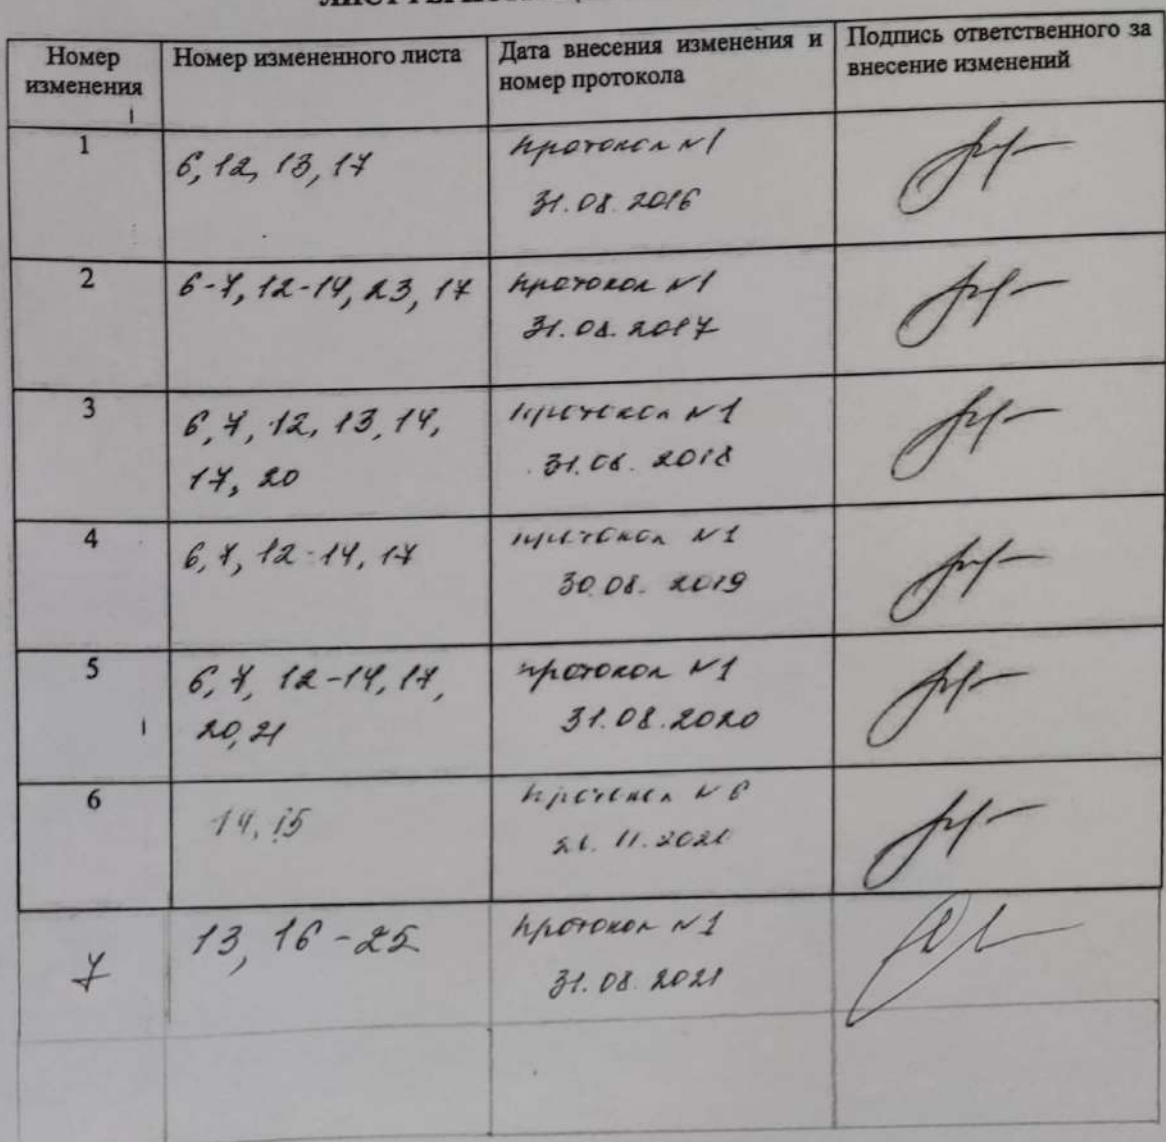 Номер изменения
Номер измененного листа
Дата внесения изменения и номер протокола
Подпись ответственного за внесение изменений
1
6, 12, 13, 17
протокол №1
31.08.2016
2
6-7, 12-14, 23, 17
протокол №1
31.08.2017
3
6, 7, 12, 13, 14,
17, 20
протокол №1
31.08.2018
4
6, 7, 12-14, 17
протокол №1
30.08.2019
5
6, 7, 12-14, 17,
20, 21
протокол №1
31.08.2020
6
14, 15
протокол №6
7
13, 16-25
протокол №1
31.08.2021